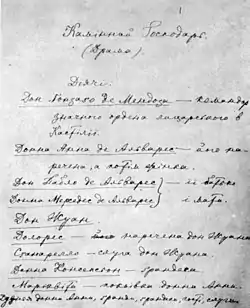 Камінний Господарь.
(Драма).
Діячі.
Дон Гонзаго де Мендоза — командор
значного ордена лицарського в
Кастілії.
Донна Анна де Альварес — його на-
речена, а потім жінка.
Дон Пабло де Альварес — її батько
Донна Мерседес де Альварес — і мати.
Дон Жуан.
Долорес — його наречена дон Жуана
Сганарель — слуга дон Жуана.
Донна Консепсьон — грандеса
Маріквіта — покоївка донни Анни.
Дуенья донни Анни, гранди, грандеси, гості, слуги